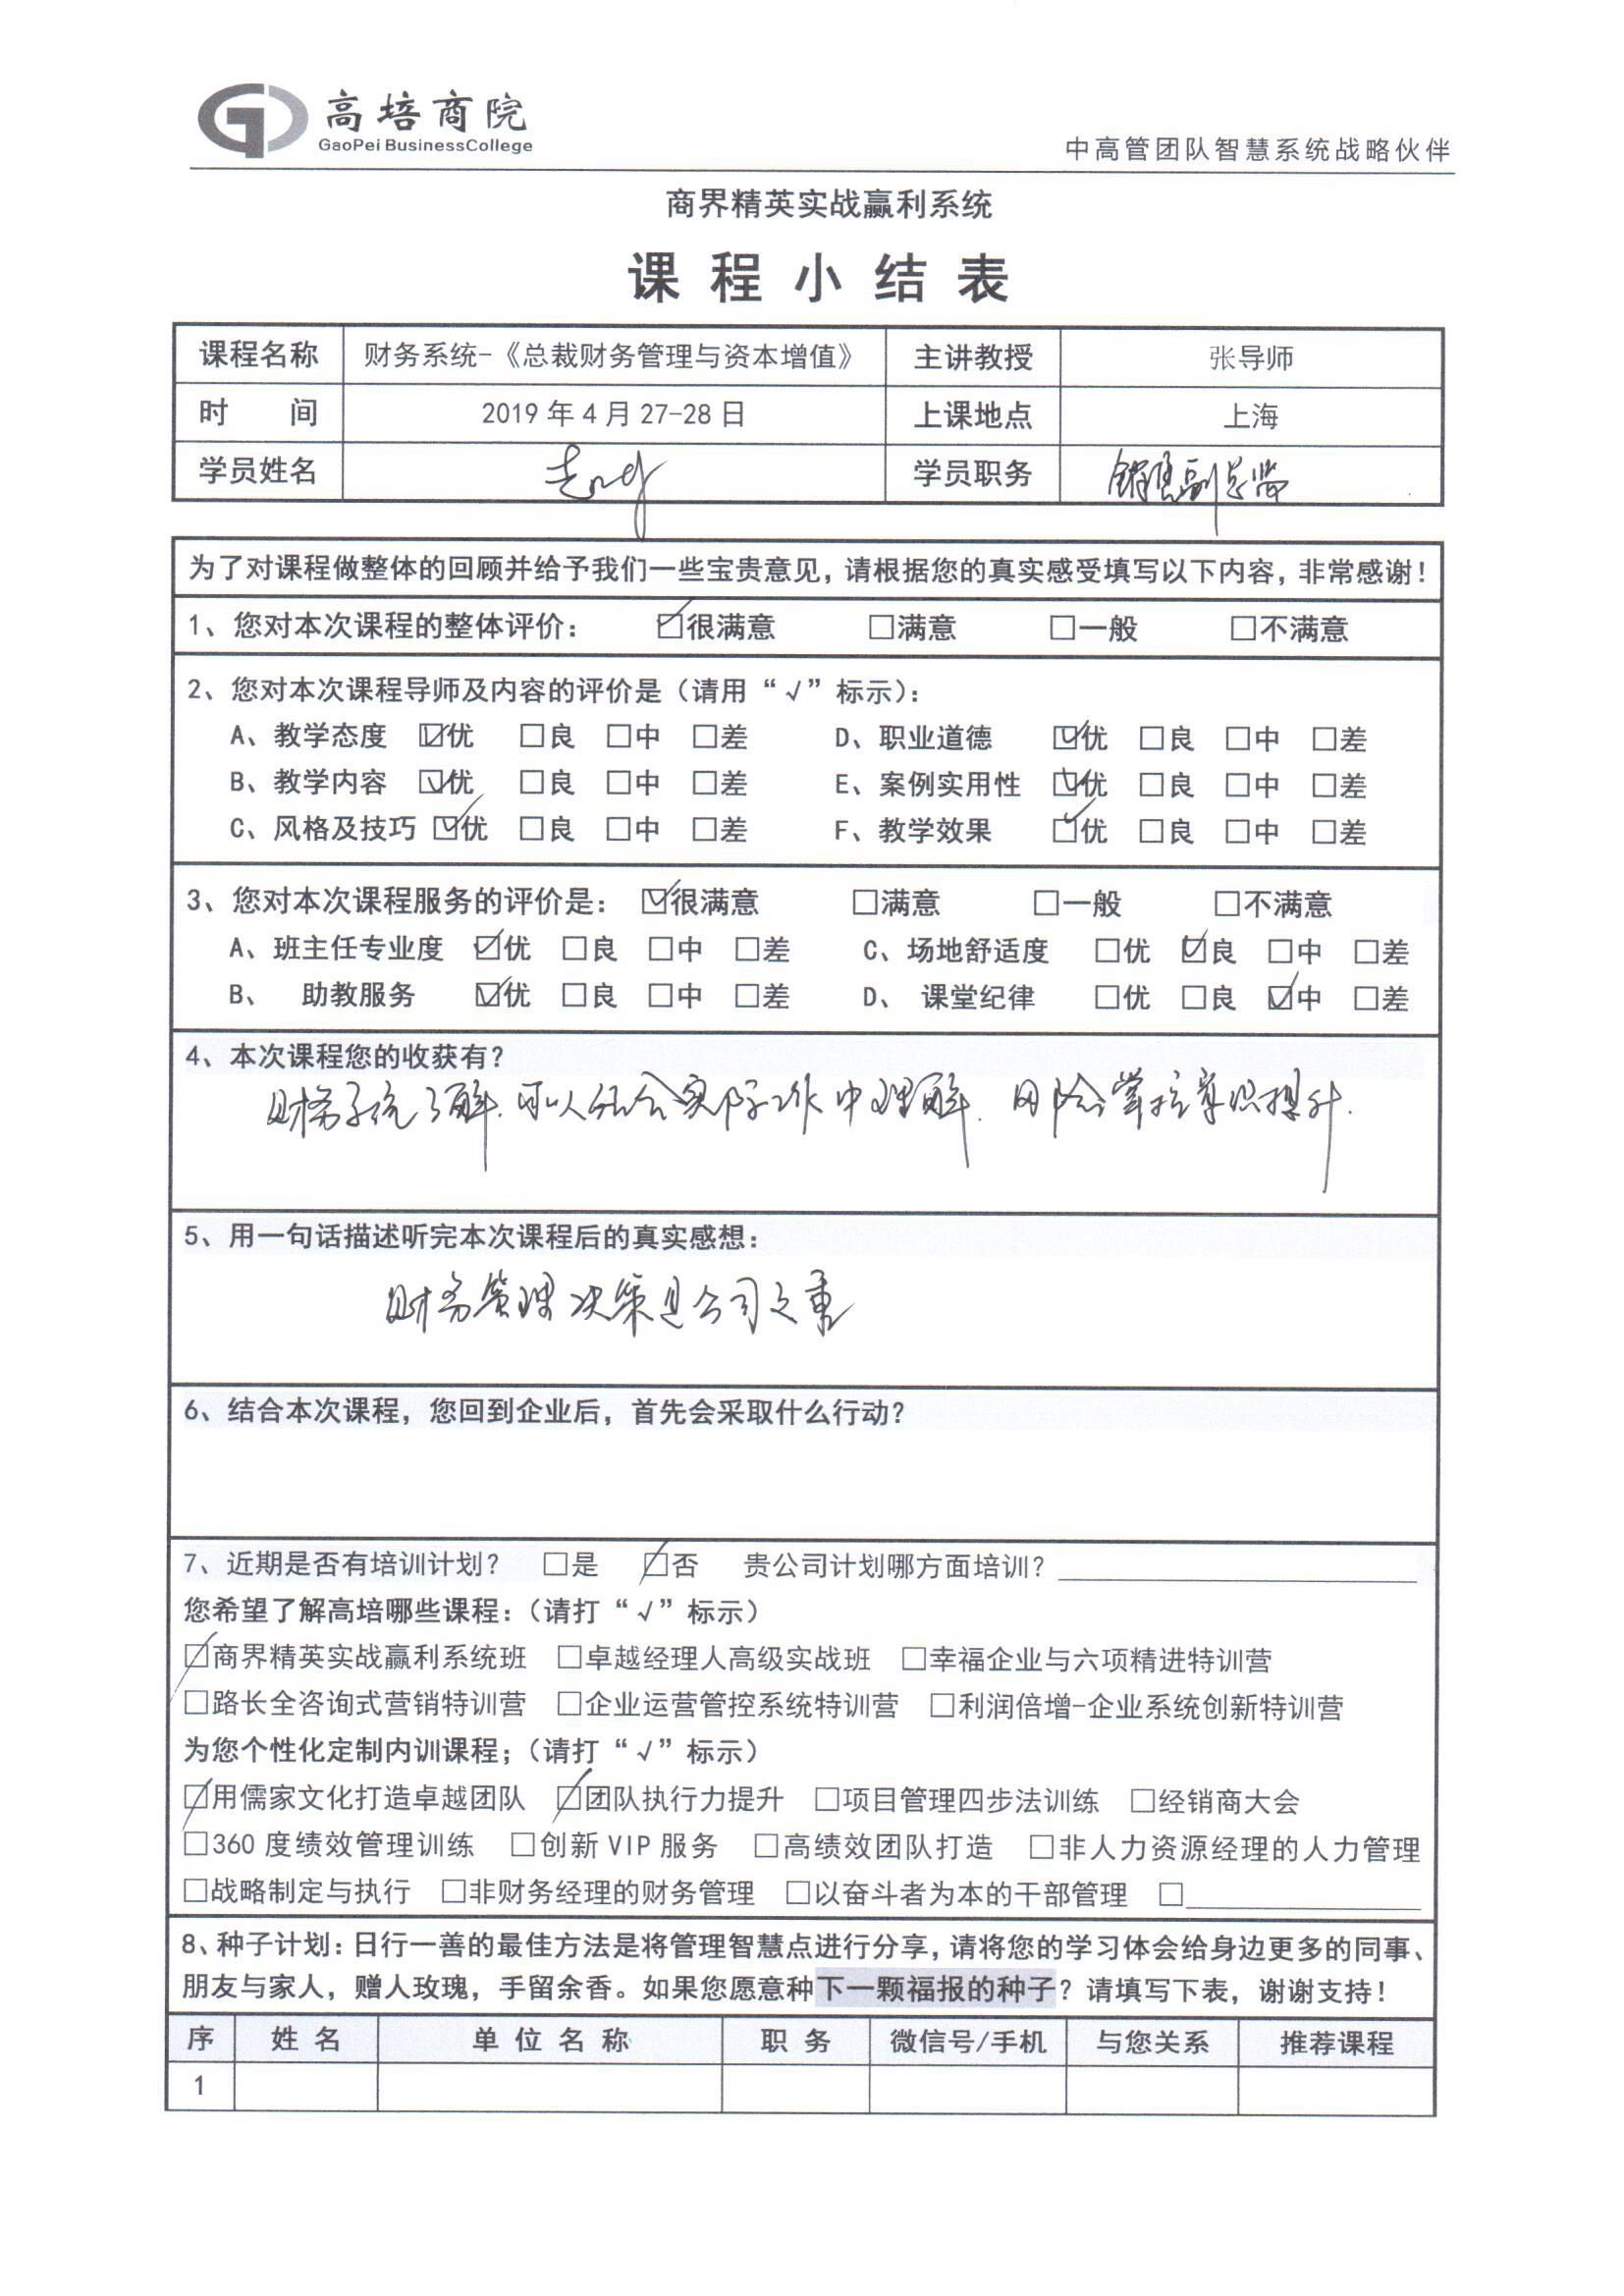 高培商院
GaoPei BusinessCollege
中高管团队智慧系统战略伙伴
商界精英实战赢利系统
课程小结表
课程名称 财务系统-《总裁财务管理与资本增值》 主讲教授 张导师
时 间 2019年4月27-28日 上课地点 上海
学员姓名 学员职务 销售副总监
为了对课程做整体的回顾并给予我们一些宝贵意见，请根据您的真实感受填写以下内容，非常感谢！
1、您对本次课程的整体评价： ☑很满意 □满意 □一般 □不满意
2、您对本次课程导师及内容的评价是（请用“√”标示）：
A、教学态度 ☑优 □良 □中 □差 D、职业道德 ☑优 □良 □中 □差
B、教学内容 ☑优 □良 □中 □差 E、案例实用性 ☑优 □良 □中 □差
C、风格及技巧 ☑优 □良 □中 □差 F、教学效果 ☑优 □良 □中 □差
3、您对本次课程服务的评价是： ☑很满意 □满意 □一般 □不满意
A、班主任专业度 ☑优 □良 □中 □差 C、场地舒适度 □优 ☑良 □中 □差
B、 助教服务 ☑优 □良 □中 □差 D、 课堂纪律 □优 □良 ☑中 □差
4、本次课程您的收获有？
财务系统了解.可以结合实际工作中理解.风险掌控意识提升.
5、用一句话描述听完本次课程后的真实感想：
财务管理决策是公司之重
6、结合本次课程，您回到企业后，首先会采取什么行动？
7、近期是否有培训计划？ □是 ☑否 贵公司计划哪方面培训？
您希望了解高培哪些课程：（请打“√”标示）
☑商界精英实战赢利系统班 □卓越经理人高级实战班 □幸福企业与六项精进特训营
□路长全咨询式营销特训营 □企业运营管控系统特训营 □利润倍增-企业系统创新特训营
为您个性化定制内训课程；（请打“√”标示）
☑用儒家文化打造卓越团队 ☑团队执行力提升 □项目管理四步法训练 □经销商大会
□360度绩效管理训练 □创新VIP服务 □高绩效团队打造 □非人力资源经理的人力管理
□战略制定与执行 □非财务经理的财务管理 □以奋斗者为本的干部管理 □
8、种子计划：日行一善的最佳方法是将管理智慧点进行分享，请将您的学习体会给身边更多的同事、
朋友与家人，赠人玫瑰，手留余香。如果您愿意种下一颗福报的种子？请填写下表，谢谢支持！
序 姓名 单位名称 职务 微信号/手机 与您关系 推荐课程
1